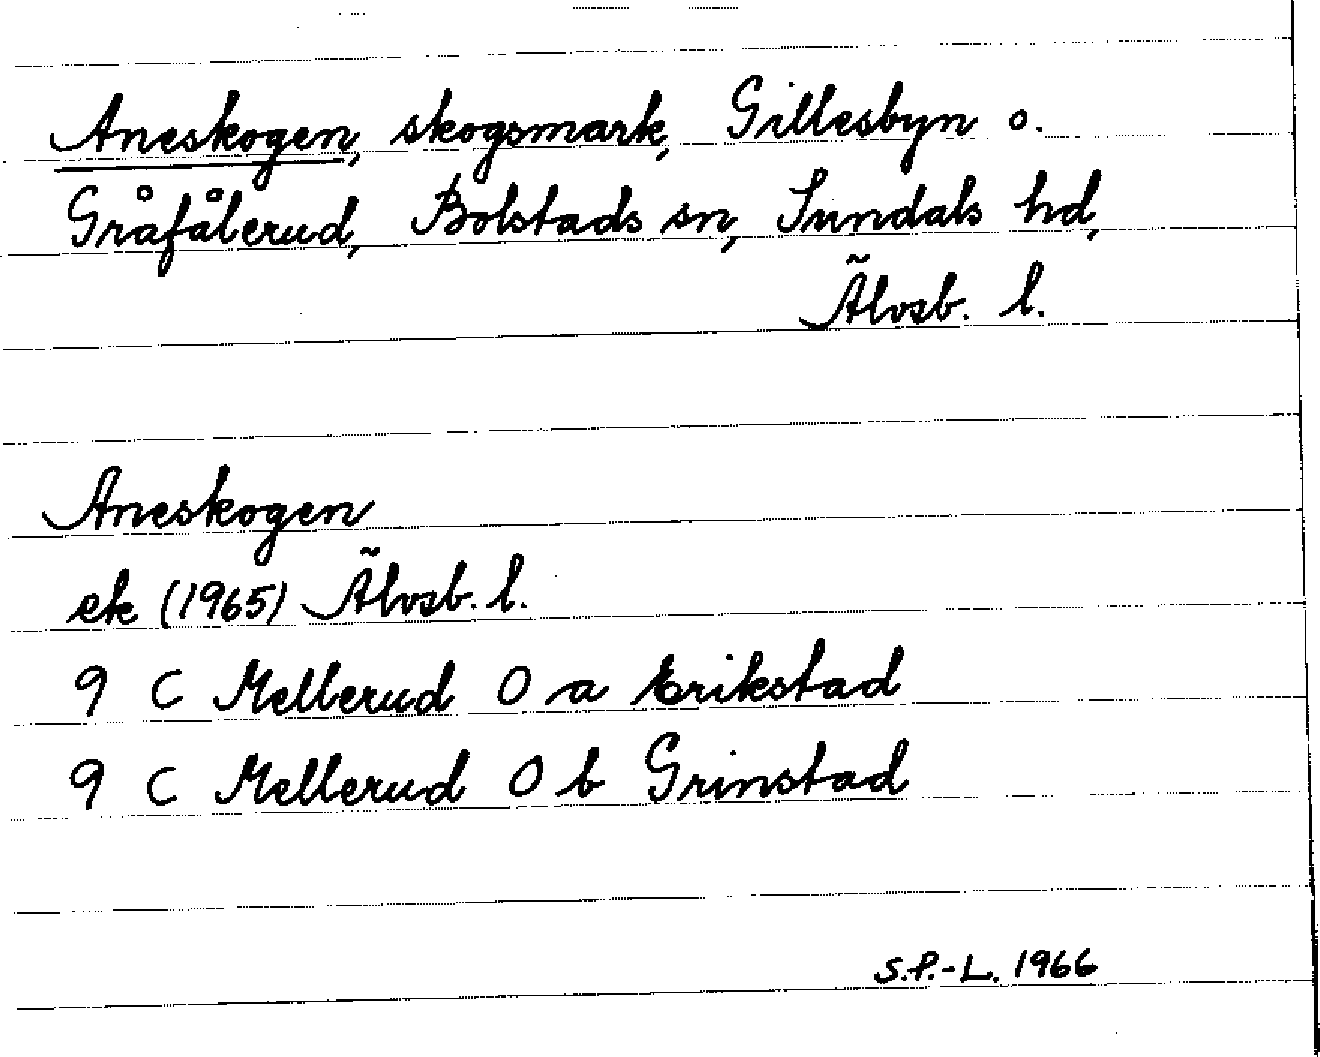 Aneskogen, skogsmark, Gillesbyn o.
Gråfålerud, Bolstads sn, Sundals hd,
Älvsb. l.
Aneskogen
ek (1965) Älvsb. l.
9 C Mellerud O a Erikstad
9 C Mellerud O b Grinstad
S.P.-L. 1966